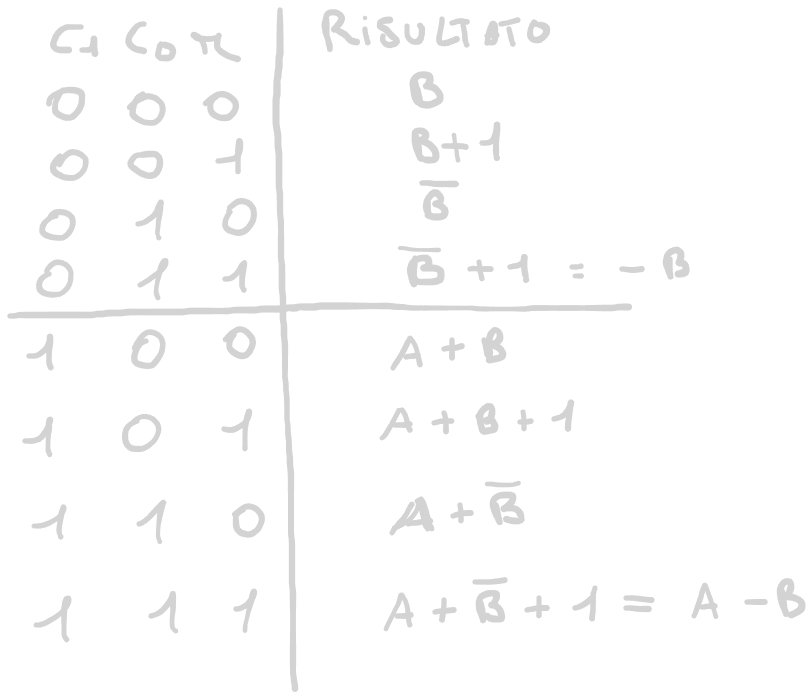 C1 C0 r RISULTATO
0 0 0 B
0 0 1 B+1
0 1 0 B̅
0 1 1 B̅ + 1 = - B
1 0 0 A + B
1 0 1 A + B + 1
1 1 0 A + B̅
1 1 1 A + B̅ + 1 = A - B